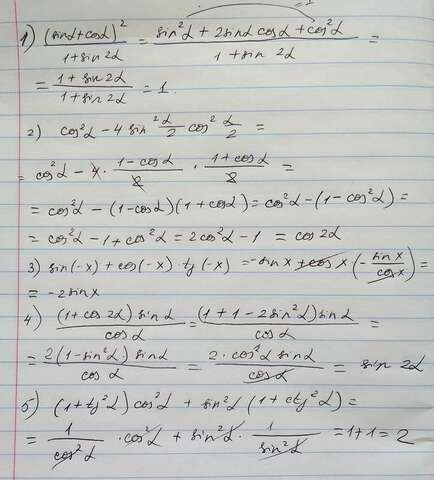 1) (sinα+cosα)² / 1+sin2α = sin²α + 2sinα cosα + cos²α / 1+sin 2α = =1
= 1+sin2α / 1+sin2α = 1.
2) cos²α - 4 sin² α/2 cos² α/2 =
= cos²α - 4 · 1-cosα / 2 · 1+cosα / 2 =
= cos²α - (1-cosα)(1+cosα) = cos²α - (1-cos²α) =
= cos²α - 1 + cos²α = 2cos²α - 1 = cos 2α
3) sin(-x) + cos(-x) · tg(-x) = -sin x + cos x · (- sin x / cos x) =
= -2sinx
4) (1+cos 2α) sinα / cosα = (1+1-2sin²α) sinα / cosα =
= 2(1-sin²α) sinα / cosα = 2·cos²α sinα / cosα = sin 2α
5) (1+tg²α) cos²α + sin²α (1+ctg²α) =
= 1 / cos²α · cos²α + sin²α · 1 / sin²α = 1+1 = 2